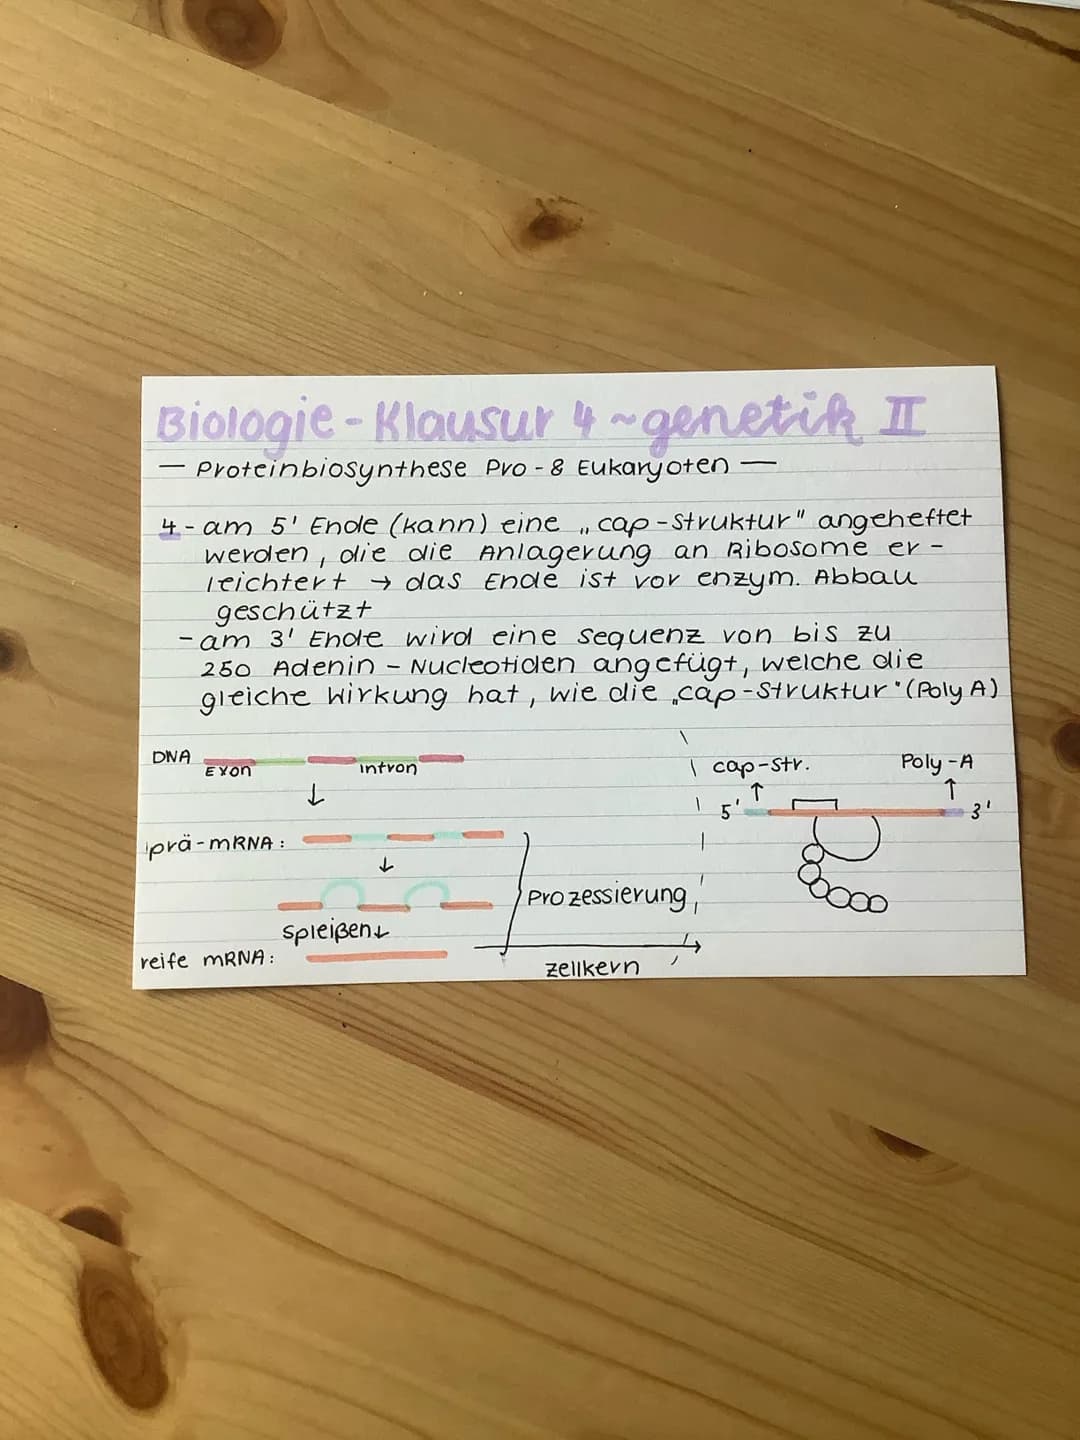 Biologie - Klausur 4 ~ genetik II
— Proteinbiosynthese Pro - & Eukaryoten —
4 - am 5' Ende (kann) eine „cap-Struktur" angeheftet
werden, die die Anlagerung an Ribosome er-
leichtert → das Ende ist vor enzym. Abbau
geschützt
- am 3' Ende wird eine Sequenz von bis zu
250 Adenin - Nucleotiden angefügt, welche die
gleiche Wirkung hat, wie die „cap-Struktur" (Poly A)
DNA
Exon
intron
↓
prä-mRNA:
↓
Spleißen↓
reife mRNA:
Prozessierung
Zellkern
cap-Str.
Poly-A
↑
↑
5'
3'